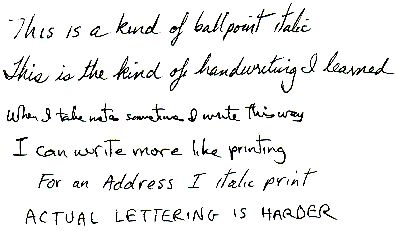 This is a kind of ballpoint italic
This is the kind of handwriting I learned
When I take notes sometimes I write this way
I can write more like printing
For an Address I italic print
ACTUAL LETTERING IS HARDER